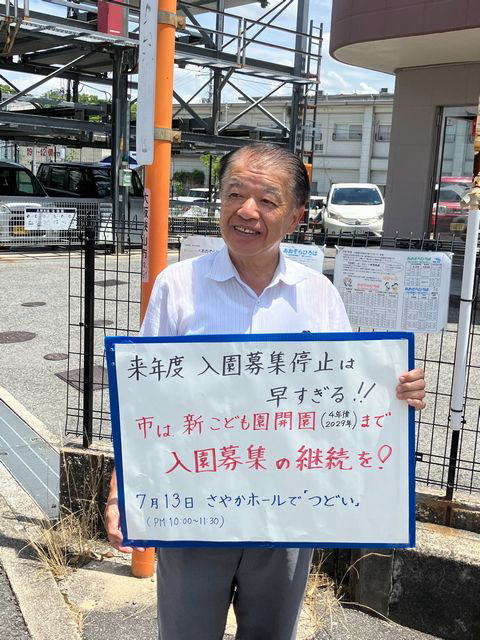 来年度 入園募集停止は
早すぎる!!
市は新こども園開園(4年後 2029年)まで
入園募集の継続を!
7月13日 さやかホールで「つどい」
(PM 10:00～11:30)
あおぞらひろば